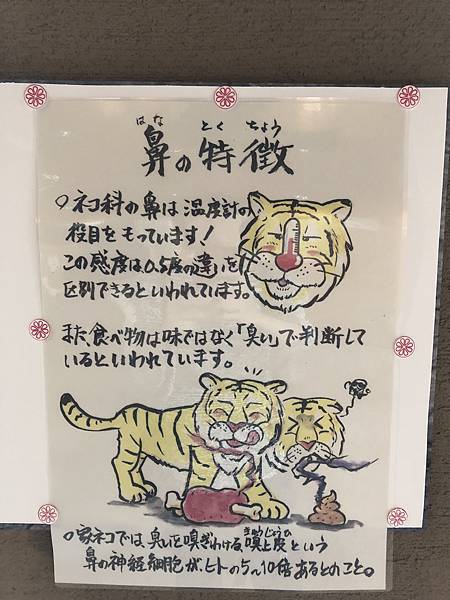 鼻の特徴
はな とくちょう
○ネコ科の鼻は温度計の
役目をもっています!
この感度は0.5度の違いを
区別できるといわれています。
また、食べ物は味ではなく「臭い」で判断して
いるといわれています。
○家ネコでは、臭いを嗅ぎわける、嗅上皮という
きゅうじょうひ
鼻の神経細胞が、ヒトの5〜10倍あるとのこと。